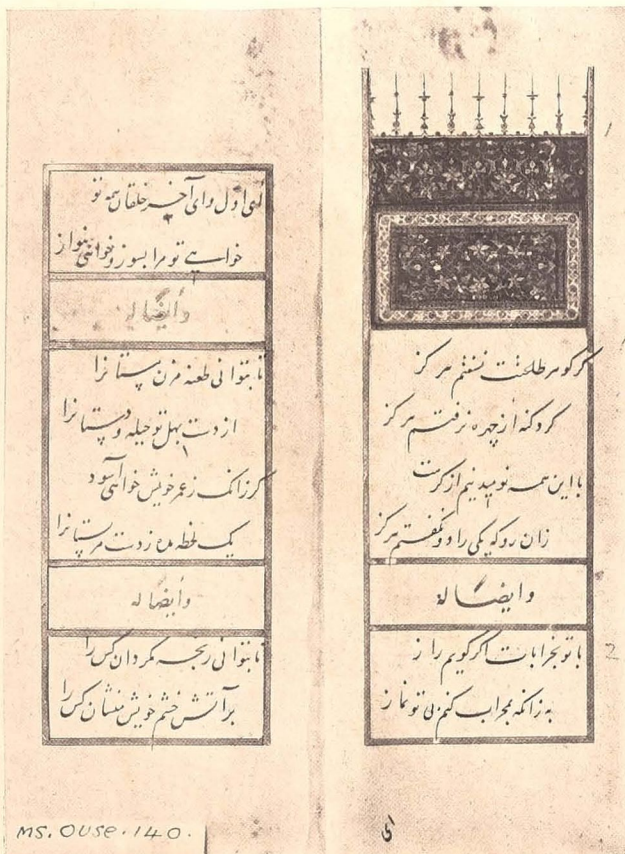 1
گر گوهر طاعتت نسفتم هرگز
گرد گنه از چهره نرفتم هرگز
با این همه نومید نیم از کرمت
زان رو که یکی را دو نگفتم هرگز
وایضاً له
2
با تو بخرابات اگر گویم راز
به زانکه بمحراب کنم بی تو نماز
ای
ای اول و ای آخر خلقان همه تو
خواهی تو مرا بسوز و خواهی بنواز
وأیضاً له
تا بتوانی طعنه مزن مستانرا
از دست بهل تو حیله و دستانرا
گر زانک ز عمر خویش خواهی آسود
یک لحظه مده ز دست مر مستانرا
وأیضاً له
تا بتوانی رنجه مگردان کس را
بر آتش خشم خویش منشان کس را
MS. OUSE. 140.